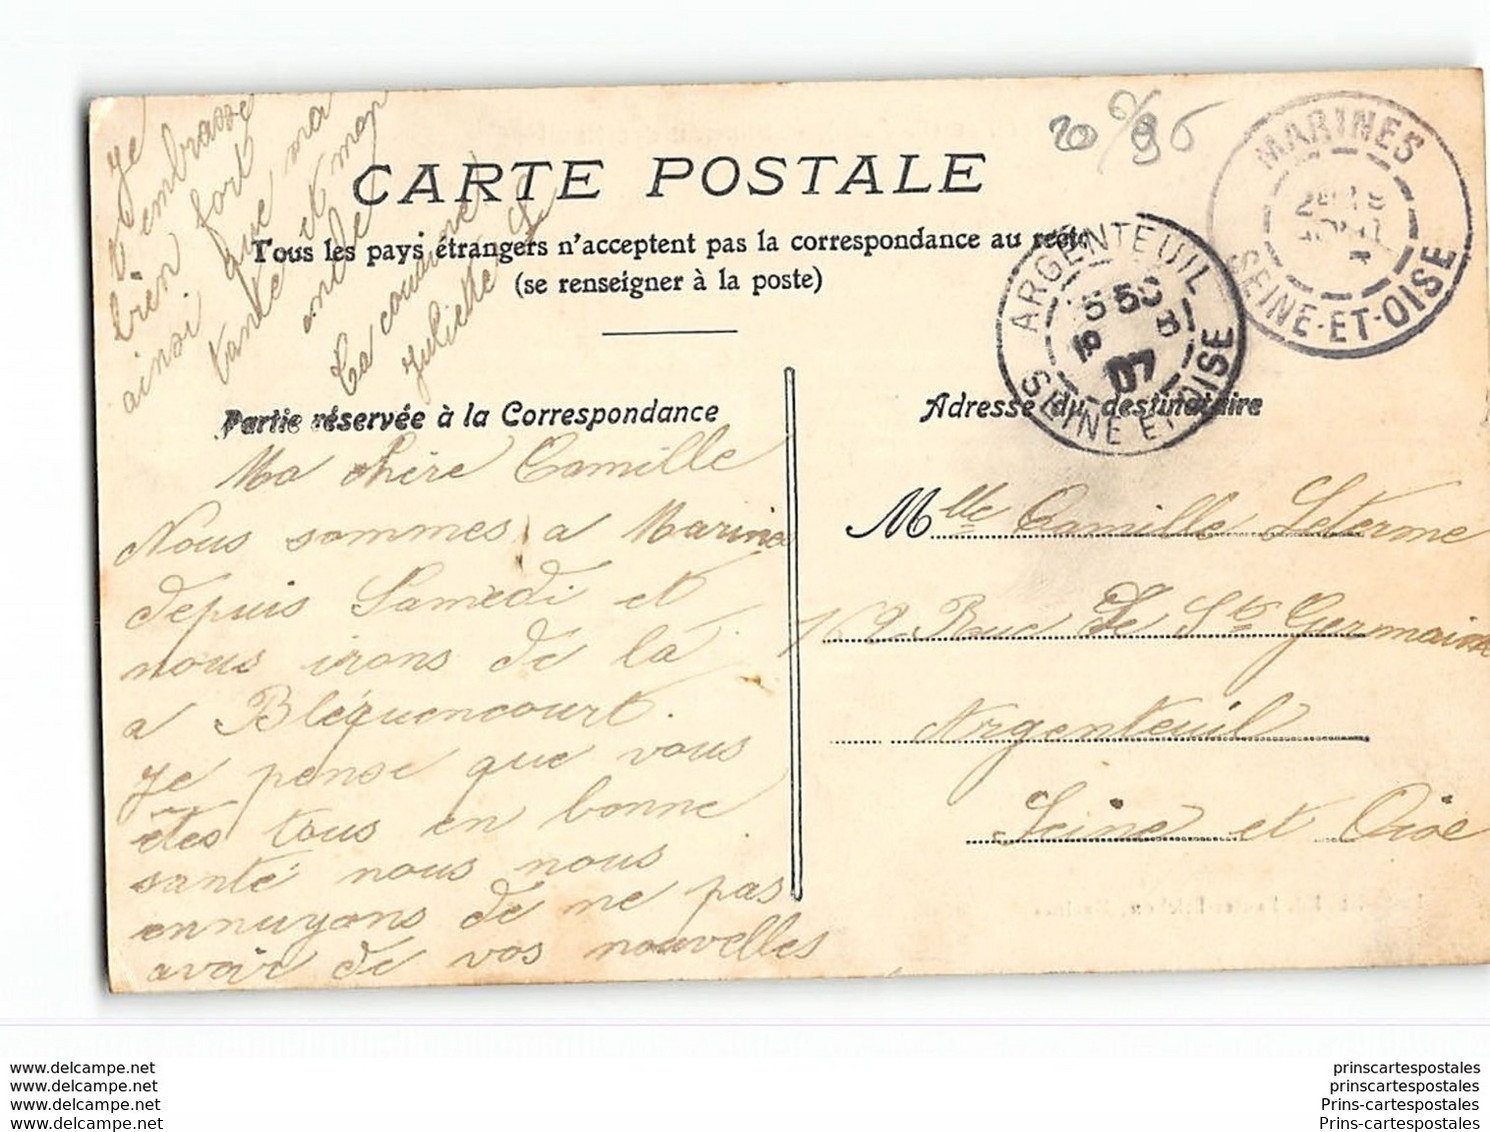 20 c/ 96
MARINES
SEINE-ET-OISE
CARTE POSTALE
Tous les pays étrangers n'acceptent pas la correspondance au recto
(se renseigner à la poste)
ARGENTEUIL
5 50
8 8
07
SEINE ET OISE
Partie réservée à la Correspondance
Adresse du destinataire
Ma chère Camille
Nous sommes a Marines
depuis Samedi et
nous irons de là
a Bléquencourt.
Je pense que vous
êtes tous en bonne
santé nous nous
ennuyons de ne pas
avoir de vos nouvelles
Je
t'embrasse
bien fort
ainsi que ma
tante et mon
oncle
Ta cousine
Juliette L
Mlle Camille Leterme
Rue De St Germain
Argenteuil
Seine et Oise
www.delcampe.net
www.delcampe.net
www.delcampe.net
www.delcampe.net
prinscartespostales
prinscartespostales
Prins-cartespostales
Prins-cartespostales